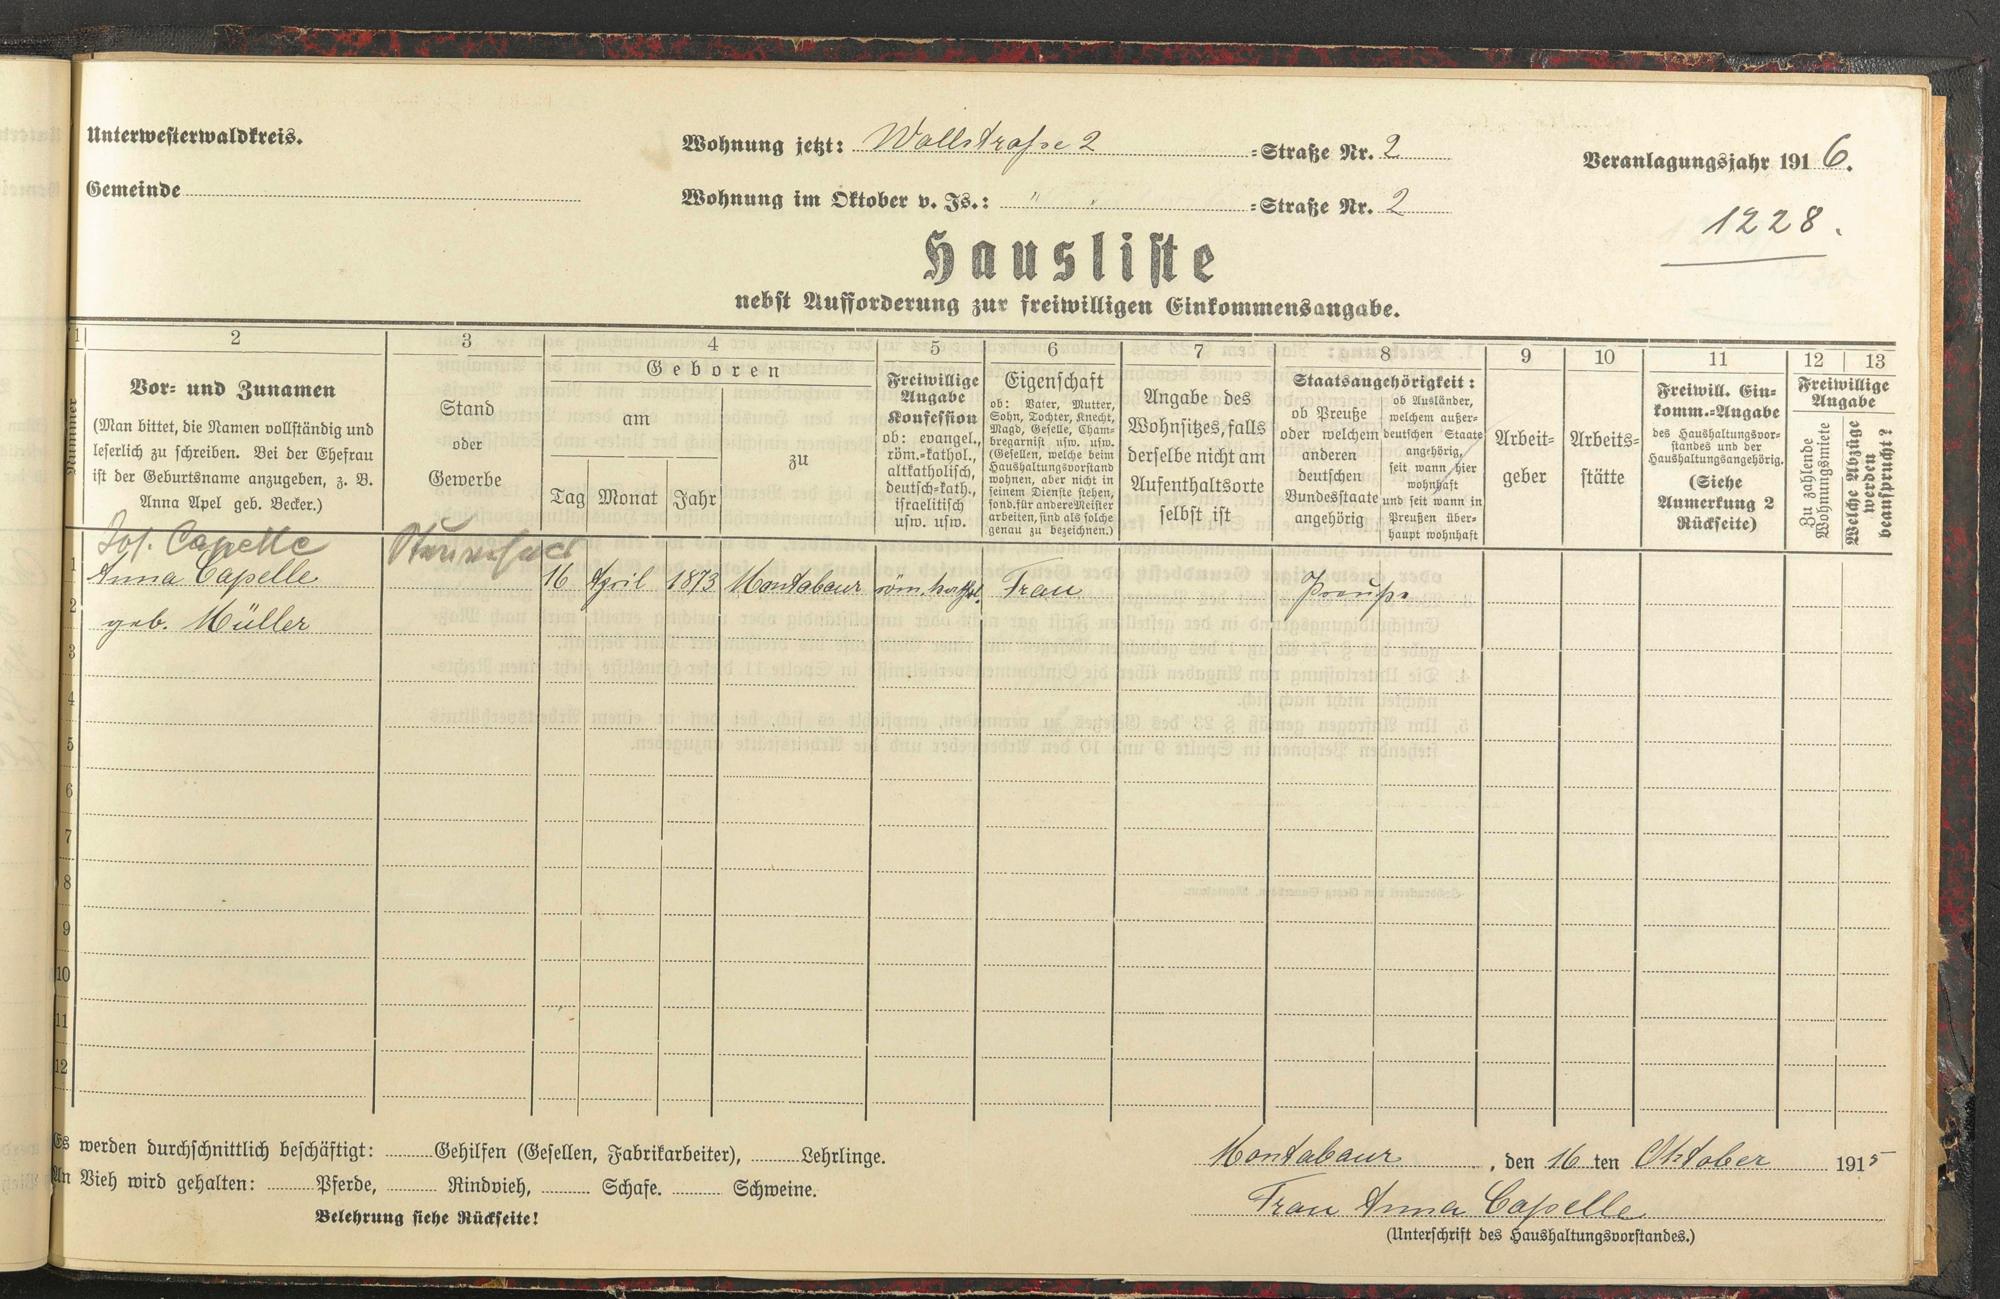 Unterwesterwaldkreis.
Gemeinde
Wohnung jetzt: Wallstraße 2 =Straße Nr. 2
Wohnung im Oktober v. Js.: " " =Straße Nr. 2
Veranlagungsjahr 1916.
1228.
Hausliste
nebst Aufforderung zur freiwilligen Einkommensangabe.
1 2 3 4 5 6 7 8 9 10 11 12 13
Nummer
Vor- und Zunamen
(Man bittet, die Namen vollständig und
leserlich zu schreiben. Bei der Ehefrau
ist der Geburtsname anzugeben, z. B.
Anna Apel geb. Becker.)
Stand
oder
Gewerbe
Geboren
am
Tag Monat Jahr
zu
Freiwillige
Angabe
Konfession
ob: evangel.,
röm.-kathol.,
altkatholisch,
deutsch-kath.,
israelitisch
usw. usw.
Eigenschaft
ob: Vater, Mutter,
Sohn, Tochter, Knecht,
Magd, Geselle, Cham-
bregarnist usw. usw.
(Gesellen, welche beim
Haushaltungsvorstand
wohnen, aber nicht in
seinem Dienste stehen,
sond. für andere Meister
arbeiten, sind als solche
genau zu bezeichnen.)
Angabe des
Wohnsitzes, falls
derselbe nicht am
Aufenthaltsorte
selbst ist
Staatsangehörigkeit:
ob Preuße
oder welchem
anderen
deutschen
Bundesstaate
angehörig
ob Ausländer,
welchem außer-
deutschen Staate
angehörig,
seit wann hier
wohnhaft
und seit wann in
Preußen über-
haupt wohnhaft
Arbeit-
geber
Arbeits-
stätte
Freiwill. Ein-
komm.-Angabe
des Haushaltungsvor-
standes und der
Haushaltungsangehörig.
(Siehe
Anmerkung 2
Rückseite)
Freiwillige
Angabe
Zu zahlende
Wohnungsmiete
Welche Abzüge
werden
beansprucht?
Jos. Capelle
1 Anna Capelle 16 April 1873 Montabaur röm. kathol. Frau Preuße
2 geb. Müller
3
4
5
6
7
8
9
10
11
12
Es werden durchschnittlich beschäftigt: Gehilfen (Gesellen, Fabrikarbeiter), Lehrlinge.
An Vieh wird gehalten: Pferde, Rindvieh, Schafe. Schweine.
Belehrung siehe Rückseite!
Montabaur, den 16 ten Oktober 1915
Frau Anna Capelle
(Unterschrift des Haushaltungsvorstandes.)